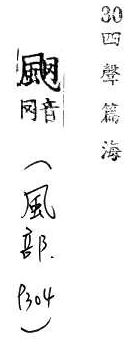 30 四聲篇海
音网
(風部. P304)